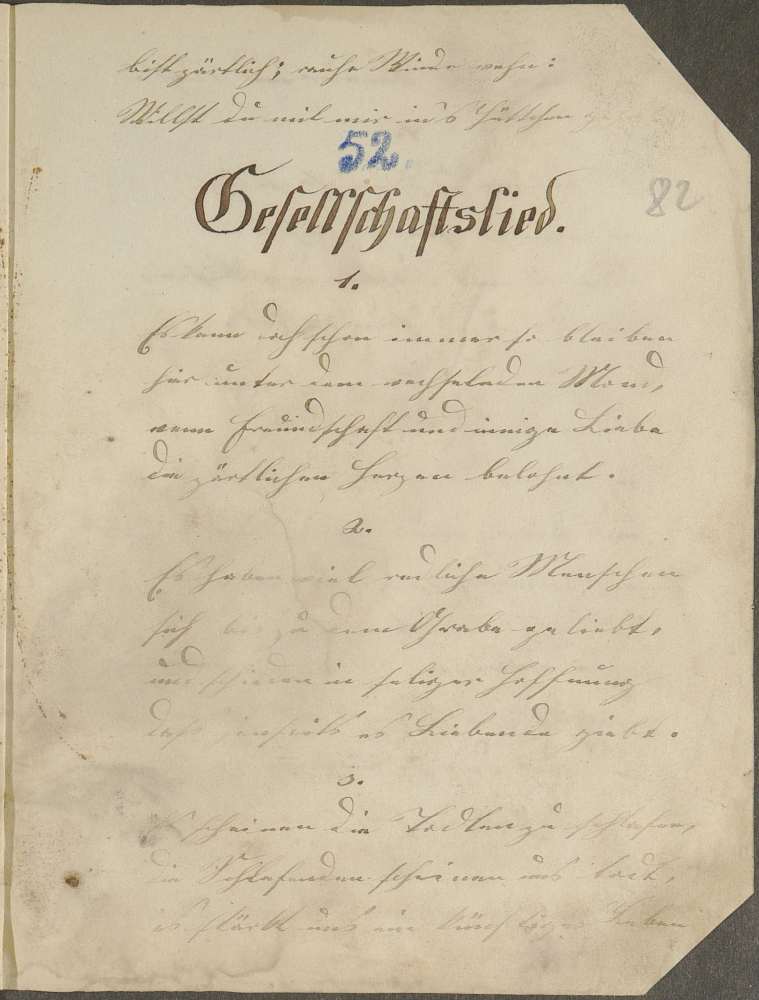 bist zärtlich; rauhe Winde wehn:
Willst du mit mir in's Hüttchen
52.
82
Gesellschaftslied.
1.
Es kann doch schon immer so bleiben
hier unter dem wechselnden Mond,
wenn Freundschaft und innige Liebe
die zärtlichen Herzen belohnt.
2.
Es haben viel redliche Menschen
sich bis zu dem Grabe geliebt,
und schieden in seliger Hoffnung
daß jenseits es Liebende giebt.
3.
Es scheinen die Todten zu schlafen,
die Schlafenden scheinen uns todt,
es stärkt uns ein künftiges Leben